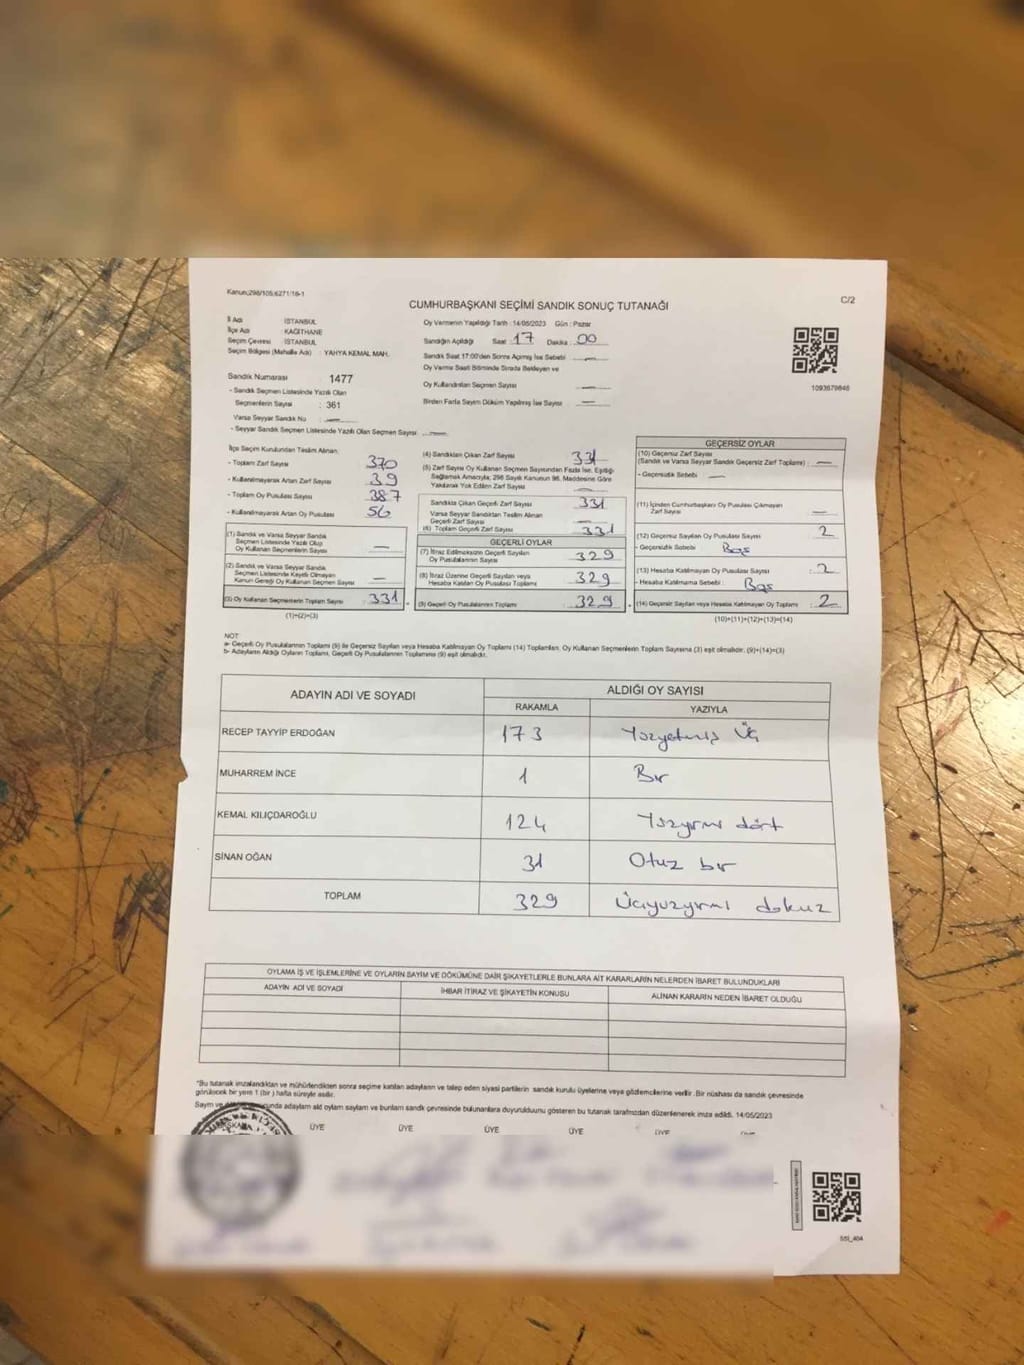 Kanun:298/105;6271/16-1
C/2
CUMHURBAŞKANI SEÇİMİ SANDIK SONUÇ TUTANAĞI
İl Adı : İSTANBUL
İlçe Adı : KAĞITHANE
Seçim Çevresi : İSTANBUL
Seçim Bölgesi (Mahalle Adı) : YAHYA KEMAL MAH.
Oy Vermenin Yapıldığı Tarih : 14/05/2023 Gün : Pazar
Sandığın Açıldığı Saat 17 Dakika : 00
Sandık Saat 17:00'den Sonra Açılmış İse Sebebi : —
Oy Verme Saati Bitiminde Sırada Bekleyen ve
Oy Kullandırılan Seçmen Sayısı : —
Birden Fazla Sayım Döküm Yapılmış İse Sayısı : —
1093679848
Sandık Numarası 1477
- Sandık Seçmen Listesinde Yazılı Olan
Seçmenlerin Sayısı : 361
Varsa Seyyar Sandık No : —
- Seyyar Sandık Seçmen Listesinde Yazılı Olan Seçmen Sayısı : —
İlçe Seçim Kurulundan Teslim Alınan;
- Toplam Zarf Sayısı 370
- Kullanılmayarak Artan Zarf Sayısı 39
- Toplam Oy Pusulası Sayısı 387
- Kullanılmayarak Artan Oy Pusulası 56
(1) Sandık ve Varsa Seyyar Sandık
Seçmen Listesinde Yazılı Olup
Oy Kullanan Seçmenlerin Sayısı —
(2) Sandık ve Varsa Seyyar Sandık
Seçmen Listesinde Kayıtlı Olmayan
Kanun Gereği Oy Kullanan Seçmen Sayısı —
(3) Oy Kullanan Seçmenlerin Toplam Sayısı : 331
(1)+(2)=(3)
(4) Sandıktan Çıkan Zarf Sayısı 331
(5) Zarf Sayısı Oy Kullanan Seçmen Sayısından Fazla İse, Eşitliği
Sağlamak Amacıyla; 298 Sayılı Kanunun 98. Maddesine Göre
Yakılarak Yok Edilen Zarf Sayısı —
Sandıkta Çıkan Geçerli Zarf Sayısı 331
Varsa Seyyar Sandıktan Teslim Alınan
Geçerli Zarf Sayısı —
(6) Toplam Geçerli Zarf Sayısı 331
GEÇERLİ OYLAR
(7) İtiraz Edilmeksizin Geçerli Sayılan
Oy Pusulası Sayısı : 329
(8) İtiraz Üzerine Geçerli Sayılan veya
Hesaba Katılan Oy Pusulası Toplamı : 329
(9) Geçerli Oy Pusulalarının Toplamı : 329
GEÇERSİZ OYLAR
(10) Geçersiz Zarf Sayısı
(Sandık ve Varsa Seyyar Sandık Geçersiz Zarf Toplamı) : —
- Geçersizlik Sebebi : —
(11) İçinden Cumhurbaşkanı Oy Pusulası Çıkmayan
Zarf Sayısı : —
(12) Geçersiz Sayılan Oy Pusulası Sayısı : 2
- Geçersizlik Sebebi : Boş
(13) Hesaba Katılmayan Oy Pusulası Sayısı : 2
- Hesaba Katılmama Sebebi : Boş
(14) Geçersiz Sayılan veya Hesaba Katılmayan Oy Toplamı : 2
(10)+(11)+(12)+(13)=(14)
NOT:
a- Geçerli Oy Pusulalarının Toplamı (9) ile Geçersiz Sayılan veya Hesaba Katılmayan Oy Toplamı (14) Toplamları, Oy Kullanan Seçmenlerin Toplam Sayısına (3) eşit olmalıdır. (9)+(14)=(3)
b- Adayların Aldığı Oyların Toplamı, Geçerli Oy Pusulalarının Toplamına (9) eşit olmalıdır.
ADAYIN ADI VE SOYADI
ALDIĞI OY SAYISI
RAKAMLA YAZIYLA
RECEP TAYYİP ERDOĞAN 173 Yüzyetmiş Üç
MUHARREM İNCE 1 Bir
KEMAL KILIÇDAROĞLU 124 Yüzyirmi dört
SİNAN OĞAN 31 Otuz bir
TOPLAM 329 Üçyüzyirmi dokuz
OYLAMA İŞ VE İŞLEMLERİNE VE OYLARIN SAYIM VE DÖKÜMÜNE DAİR ŞİKAYETLERLE BUNLARA AİT KARARLARIN NELERDEN İBARET BULUNDUKLARI
ADAYIN ADI VE SOYADI İHBAR İTİRAZ VE ŞİKAYETİN KONUSU ALINAN KARARIN NEDEN İBARET OLDUĞU
*Bu tutanak imzalandıktan ve mühürlendikten sonra seçime katılan adayların ve talep eden siyasi partilerin sandık kurulu üyelerine veya gözlemcilerine verilir. Bir nüshası da sandık çevresinde
görülecek bir yere 1 (bir) hafta süreyle asılır.
Sayım ve adayların aldığı oyların sandık çevresinde bulunanlara duyurulduğunu gösteren bu tutanak tarafımızdan düzenlenerek imza edildi. 14/05/2023
ÜYE ÜYE ÜYE ÜYE ÜYE
SSİ_404